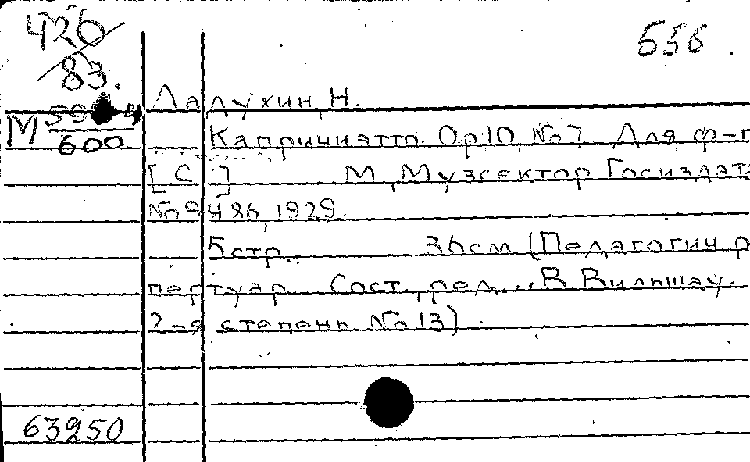 426/83.
556.
Ладухин, Н.
М
600
Каприччиэтто. Op.10, №7. Для ф-п
[С.] М., Музсектор Госиздата
№ 9486, 1929.
5 стр. 36 см. (Педагогич. ре
пертуар. Сост. ред. В. Вильшау.
2-я степень № 13).
63250